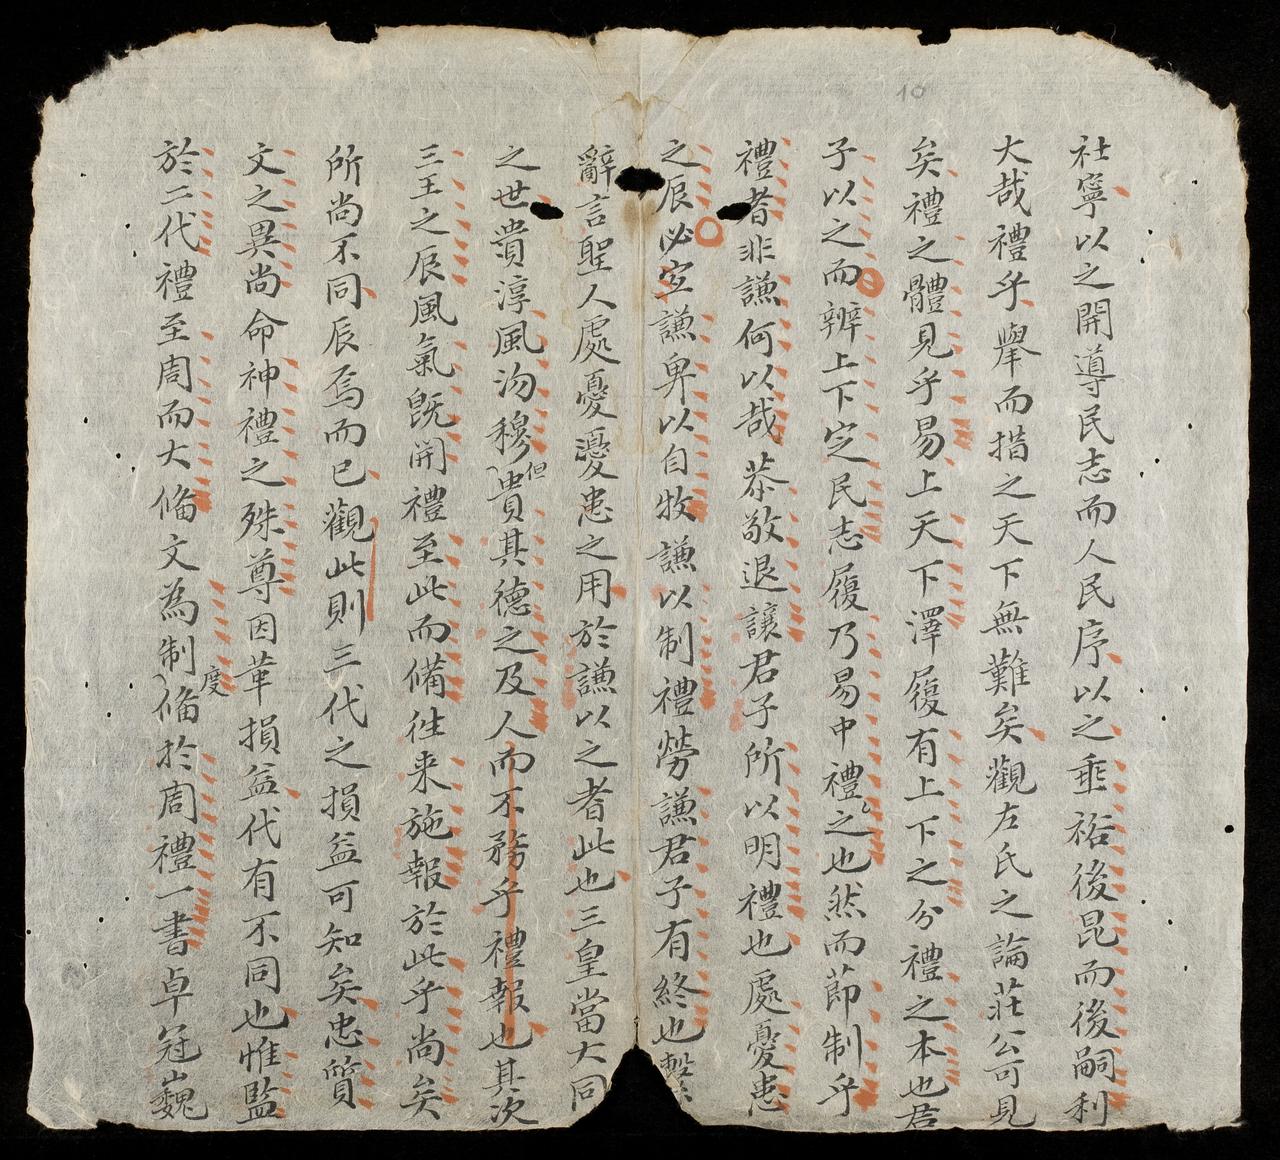 社寧以之開導民志而人民序以之垂裕後昆而後嗣利
大哉禮乎舉而措之天下無難矣觀左氏之論莊公可見
矣禮之體見乎易上天下澤履有上下之分禮之本也君
子以之而辨上下定民志履乃易中禮之也然而莭制乎
禮者非謙何以哉恭敬退讓君子所以明禮也處憂患
之辰必宜謙卑以自牧謙以制禮勞謙君子有終也繫
辭言聖人處憂憂患之用於謙以之者此也三皇當大同
之世貴淳風沕穆但貴其德之及人而不務乎禮報也其次
三王之辰風氣既開禮至此而備徃来施報於此乎尚矣
所尚不同辰焉而已觀此則三代之損益可知矣忠質
文之異尚命神禮之殊尊因革損益代有不同也惟監
於二代禮至周而大脩文為制度脩於周禮一書卓冠巍
10